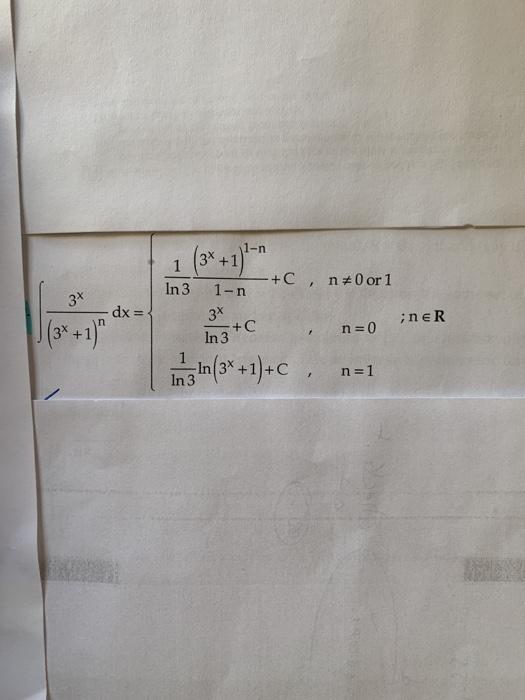 ∫ 3^x / (3^x +1)^n dx = { 1/ln3 (3^x +1)^(1−n) / (1−n) +C , n≠0 or 1
3^x / ln3 +C , n=0
1/ln3 ln(3^x +1)+C , n=1
;n∈R